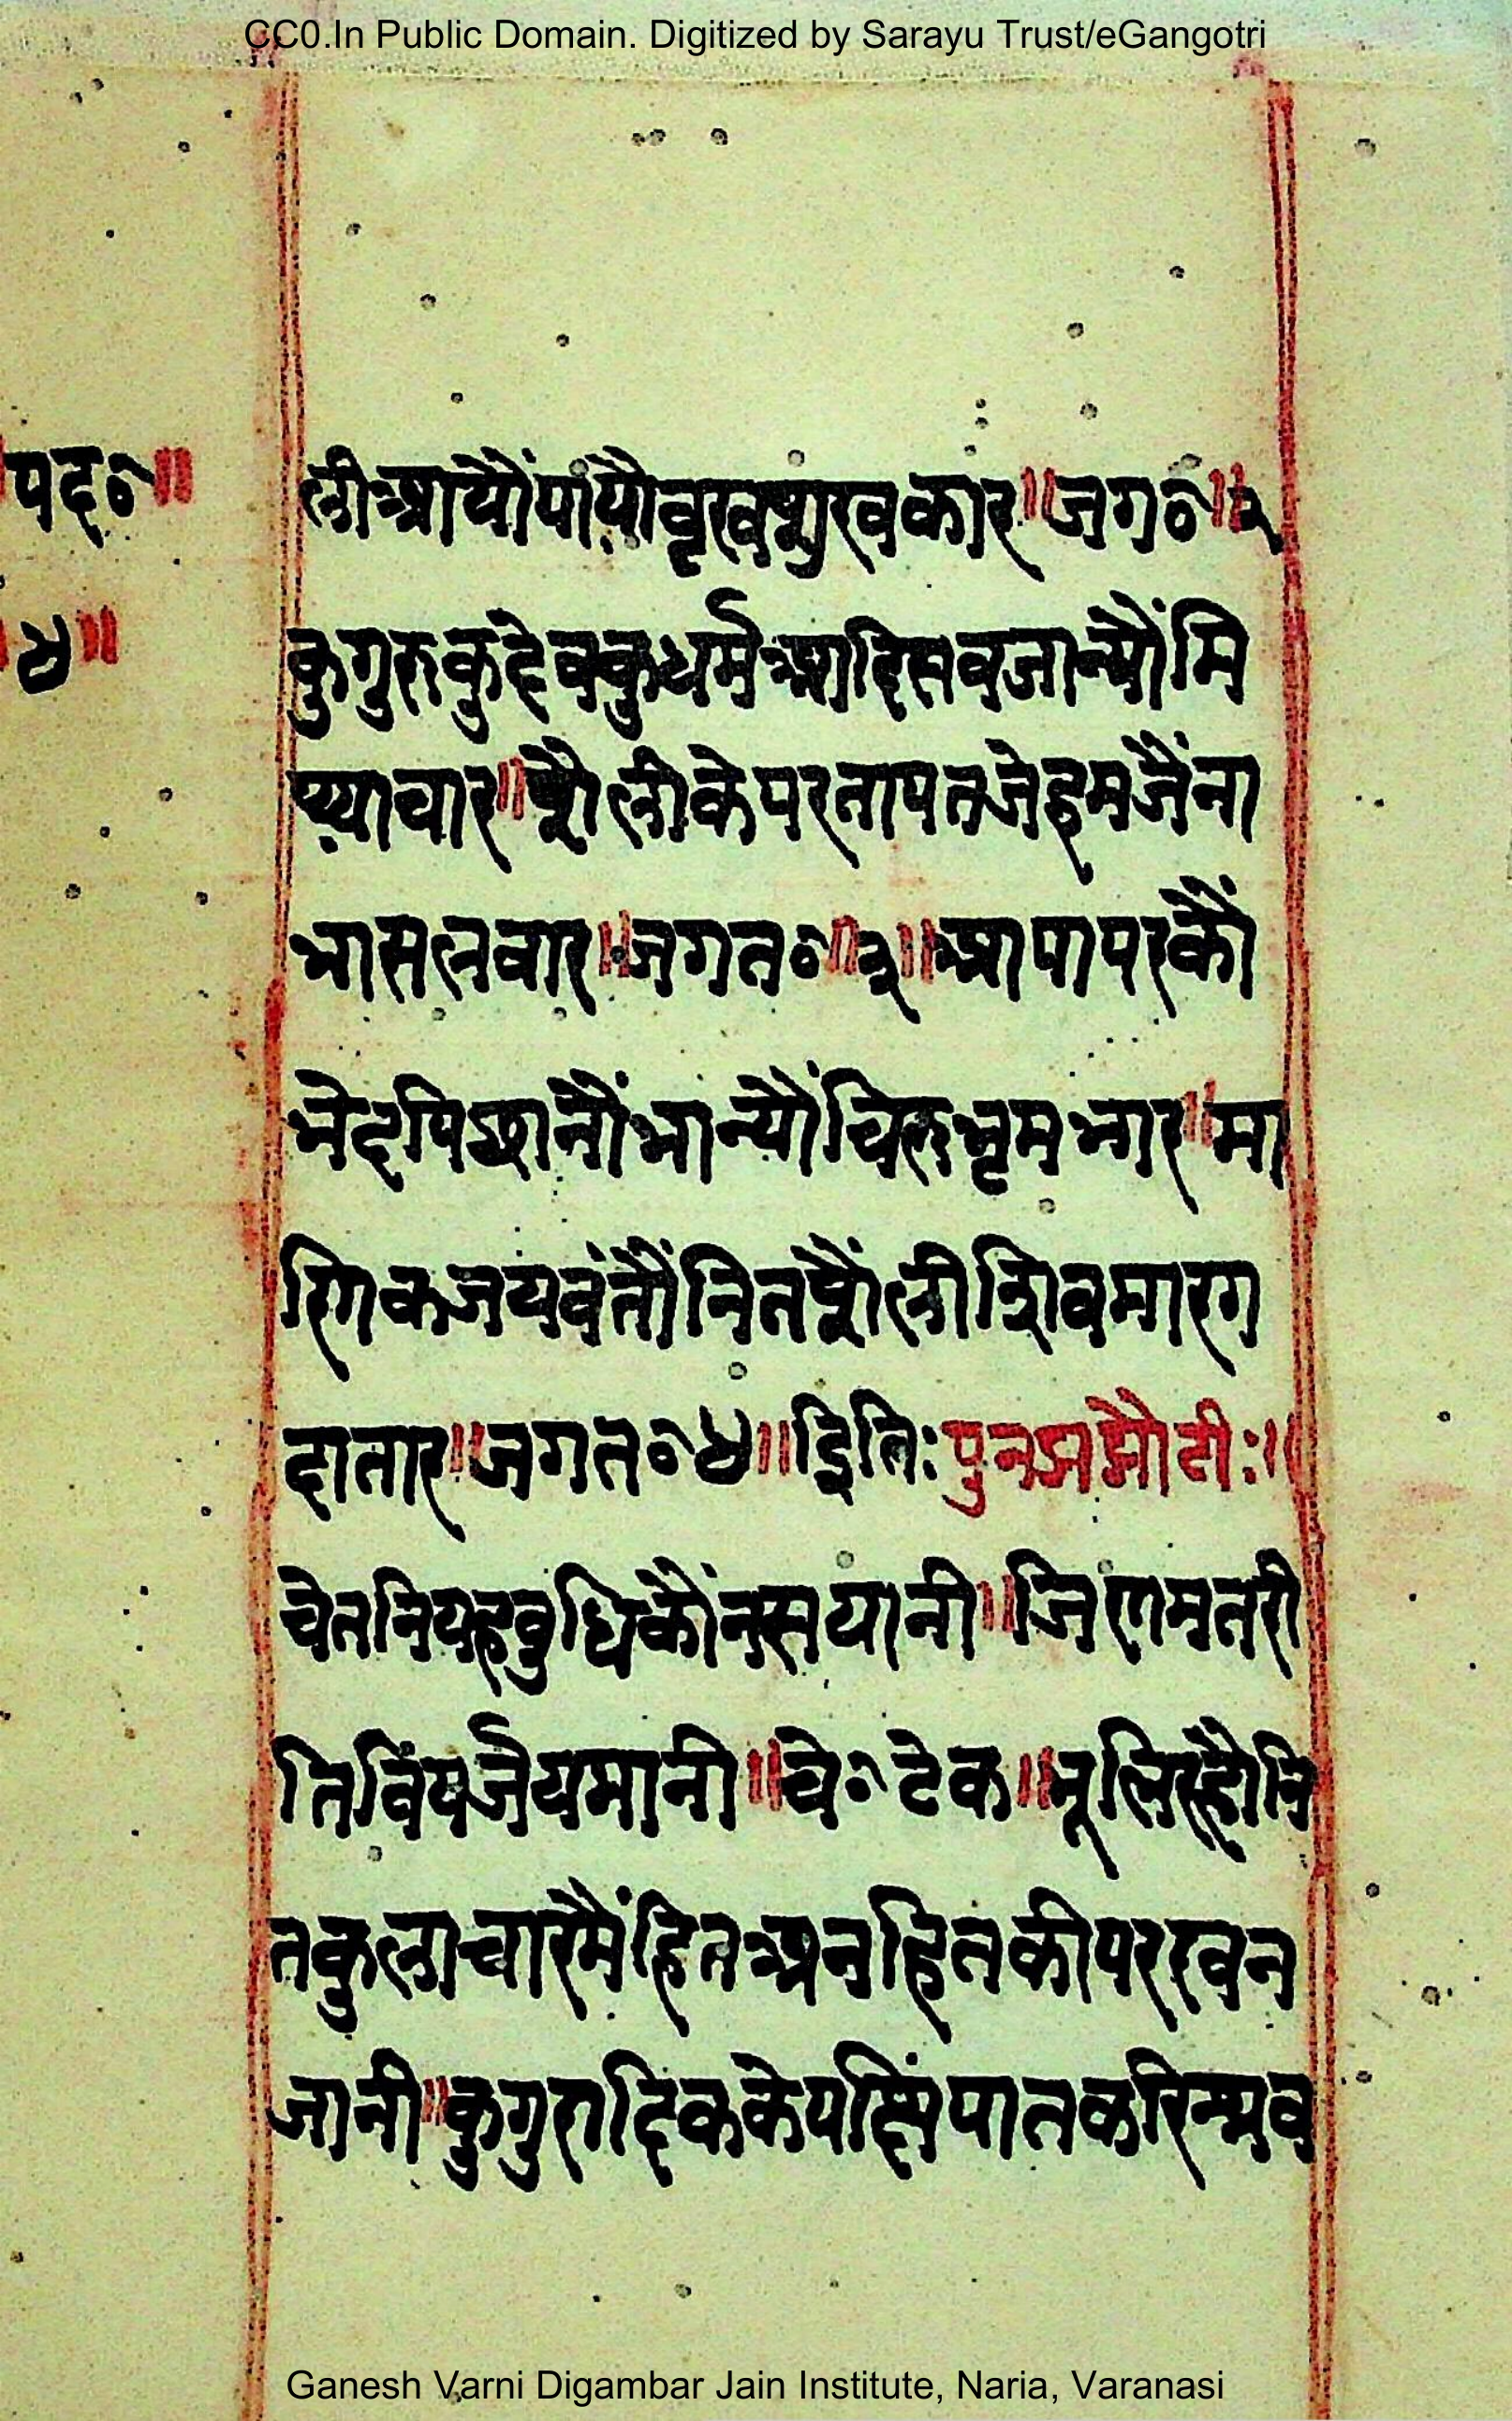 CC0.In Public Domain. Digitized by Sarayu Trust/eGangotri
पद०॥
४॥
ली आयौं पांयौ वृख सुख कार॥ जग०॥२
कुगुरु कुदेव कुधर्म आदि सब जान्यौं मि
थ्याचार॥ शैली के परताप तजे हम जैंना
भास लबार॥ जगत०॥३॥ आपा पर कौ
भेद पिछानौं भान्यौं चिरु भृम भार॥ मा
णिक जयवंतौं नित शैली शिव मारग
दातार॥ जगत०४॥ इति: पुनः
चेतनि यह बुधि कौंन सयानी॥ जिणमत री
ति विंपर्जै यमानी॥ चे० टेक॥ भूलि रह्यौ नि
त कुलाचार मैं हित अनहित की परख न
जानी॥ कुगुरादिक के पक्षिंपात करि
Ganesh Varni Digambar Jain Institute, Naria, Varanasi